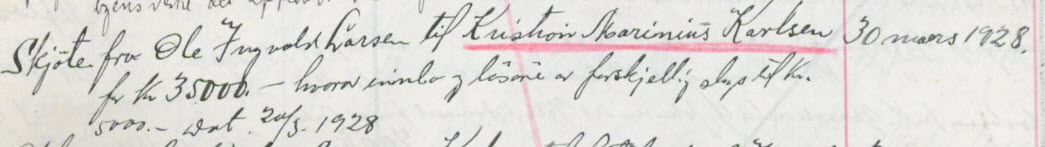 Skjøte fra Ole Ingvald Larsen til Kristian Marinius Karlsen 30 mars 1928.
for kr 35000.- hvorav innbo og løsøre av forskjellig slags til kr.
5000.- dat. 20/3. 1928